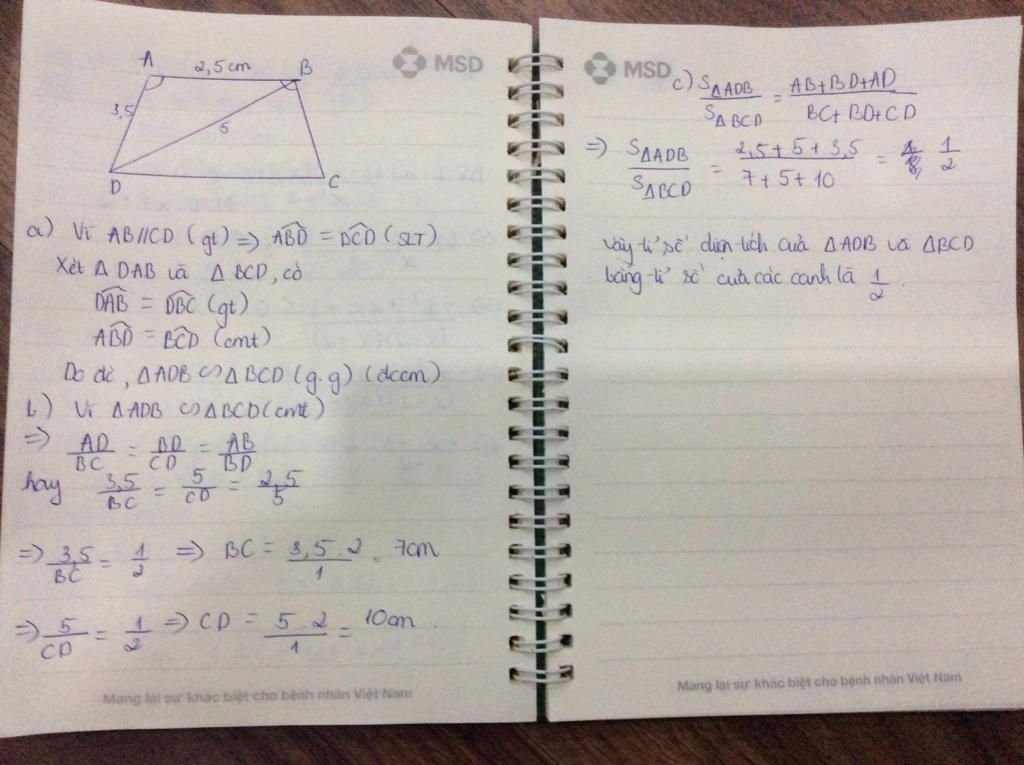 A 2,5cm B
3,5
5
D C
MSD
a) Vì AB//CD (gt) => ABD̂ = DCD̂ (SLT)
Xét Δ DAB và Δ BCD, có
DAB̂ = DBĈ (gt)
ABD̂ = BCD̂ (cmt)
Do đó, ΔADB ∽ ΔBCD (g.g) (đccm)
b) Vì ΔADB ∽ ΔBCD (cmt)
=> AD/BC = BD/CD = AB/BD
hay 3,5/BC = 5/CD = 2,5/5
=> 3,5/BC = 1/2 => BC = 3,5.2/1 = 7cm
=> 5/CD = 1/2 => CD = 5.2/1 = 10cm
Mang lại sự khác biệt cho bệnh nhân Việt Nam
MSD
c) SΔADB/SΔBCD = AB+BD+AD/BC+BD+CD
=> SΔADB/SΔBCD = 2,5+5+3,5/7+5+10 = 1/2
Vậy tỉ số diện tích của ΔADB và ΔBCD
bằng tỉ số của các cạnh là 1/2.
Mang lại sự khác biệt cho bệnh nhân Việt Nam